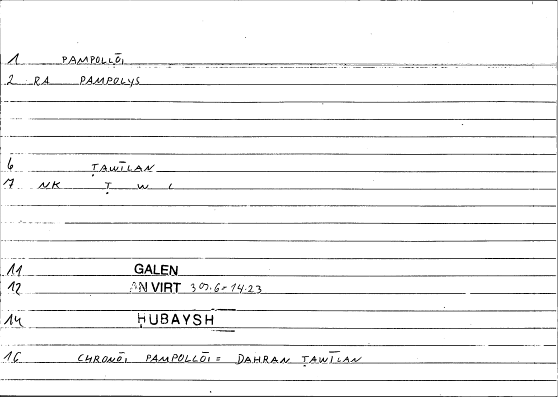 1 PAMPOLLŌI
2 RA PAMPOLYS
6 ṬAWĪLAN
7 NK Ṭ W L
11 GALEN
12 AN VIRT
14 ḤUBAYSH
16 CHRONŌI PAMPOLLŌI = DAHRAN ṬAWĪLAN